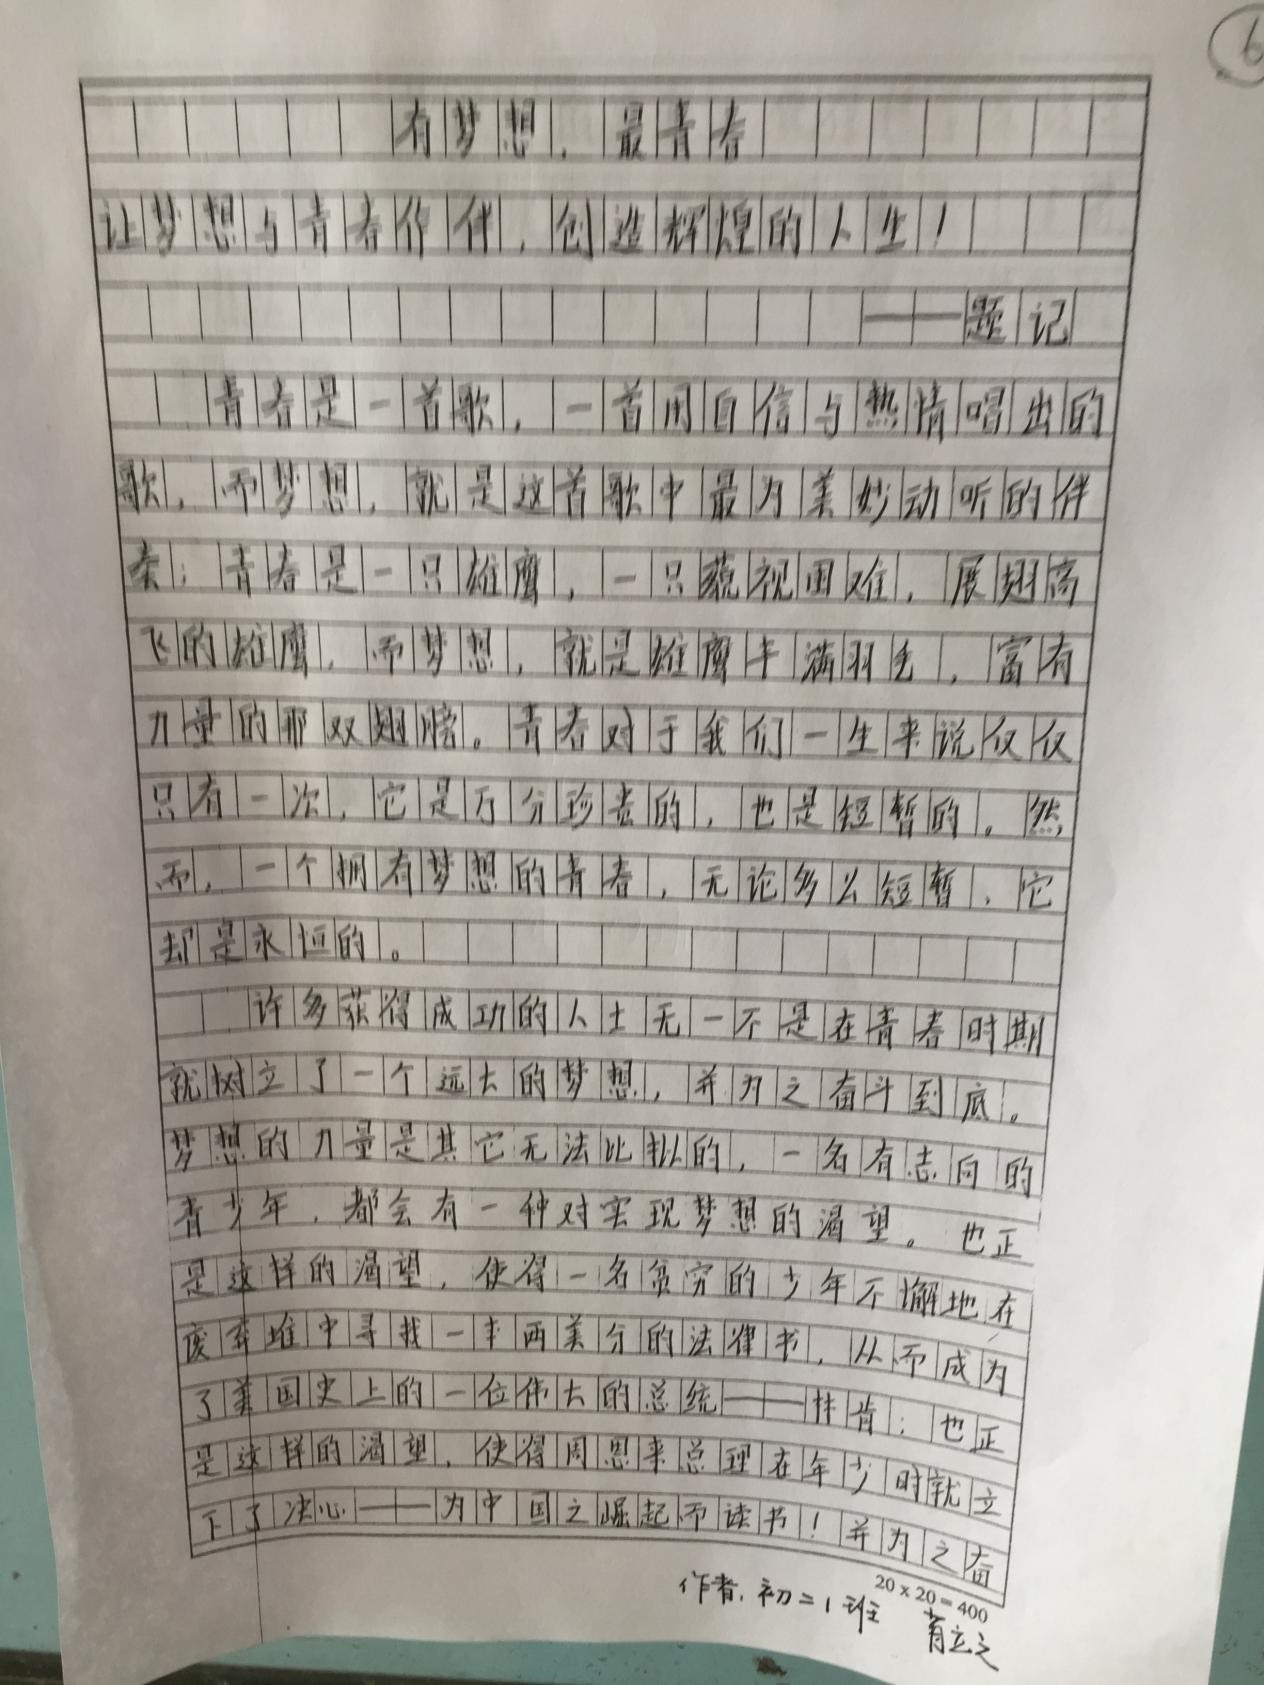 6
有梦想，最青春
让梦想与青春作伴，创造辉煌的人生！
——题记
青春是一首歌，一首用自信与热情唱出的
歌，而梦想，就是这首歌中最为美妙动听的伴
奏；青春是一只雄鹰，一只藐视困难，展翅高
飞的雄鹰，而梦想，就是雄鹰丰满羽毛，富有
力量的那双翅膀。青春对于我们一生来说仅仅
只有一次，它是万分珍贵的，也是短暂的。然
而，一个拥有梦想的青春，无论多么短暂，它
却是永恒的。
许多获得成功的人士无一不是在青春时期
就树立了一个远大的梦想，并为之奋斗到底。
梦想的力量是其它无法比拟的，一名有志向的
青少年，都会有一种对实现梦想的渴望。也正
是这样的渴望，使得一名贫穷的少年不懈地在
废弃堆中寻找一本两美分的法律书，从而成为
了美国史上的一位伟大的总统——林肯；也正
是这样的渴望，使得周恩来总理在年少时就立
下了决心——为中国之崛起而读书！并为之奋
20×20=400
作者：初二1班 肖立之